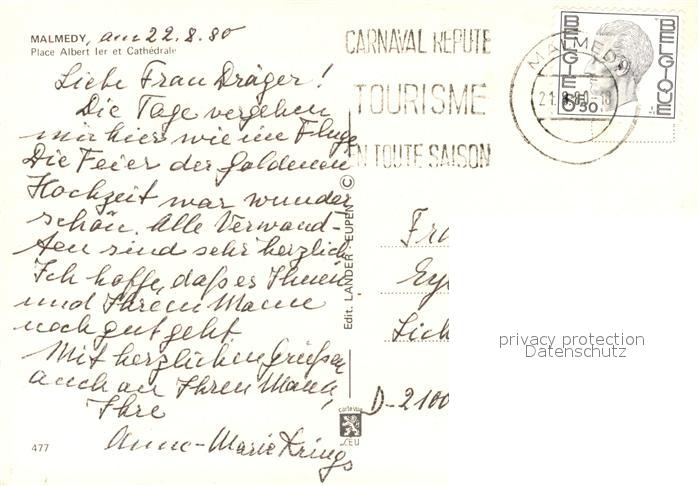 MALMEDY, am 22.8.80
Place Albert Ier et Cathédrale
Liebe Frau Dräger!
Die Tage vergehen
mir hier wie im Fluge
Die Feier der goldenen
Hochzeit war wunder
schön. Alle Verwand-
ten sind sehr herzlich
Ich hoffe, daß es Ihnen
und Ihrem Manne
noch gut geht
Mit herzlichen Grüßen
auch an Ihren Mann,
Ihre
Anne-Marie Krings
477
Edit. LANDER - EUPEN - ©
carte vue
CARNAVAL REPUTE
TOURISME
EN TOUTE SAISON
MALMEDY
BELGIE
BELGIQUE
6 50
D-2100
privacy protection
Datenschutz